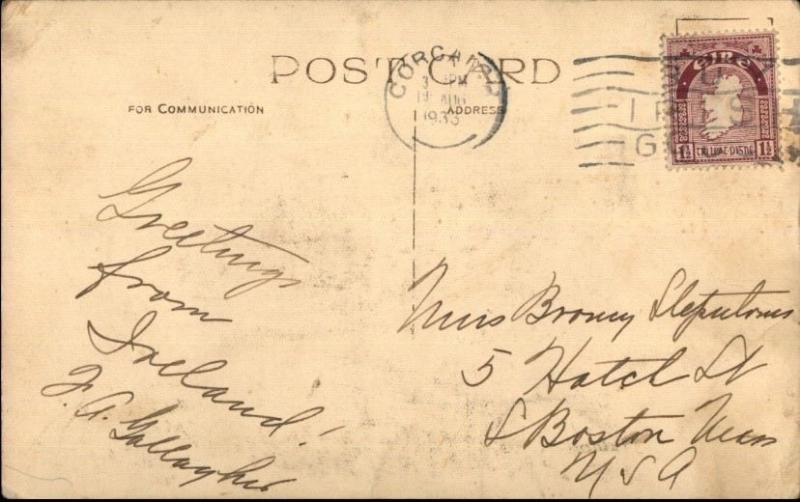 POST CARD
FOR COMMUNICATION
ADDRESS
CORCAIGH
3 PM
19 AUG
1933
BUY
IRISH
GOODS
ÉIRE
1½
1½
Greetings
from
Ireland!
F. A. Gallagher
Miss Broney
5 Hatch St
S Boston Mass
USA